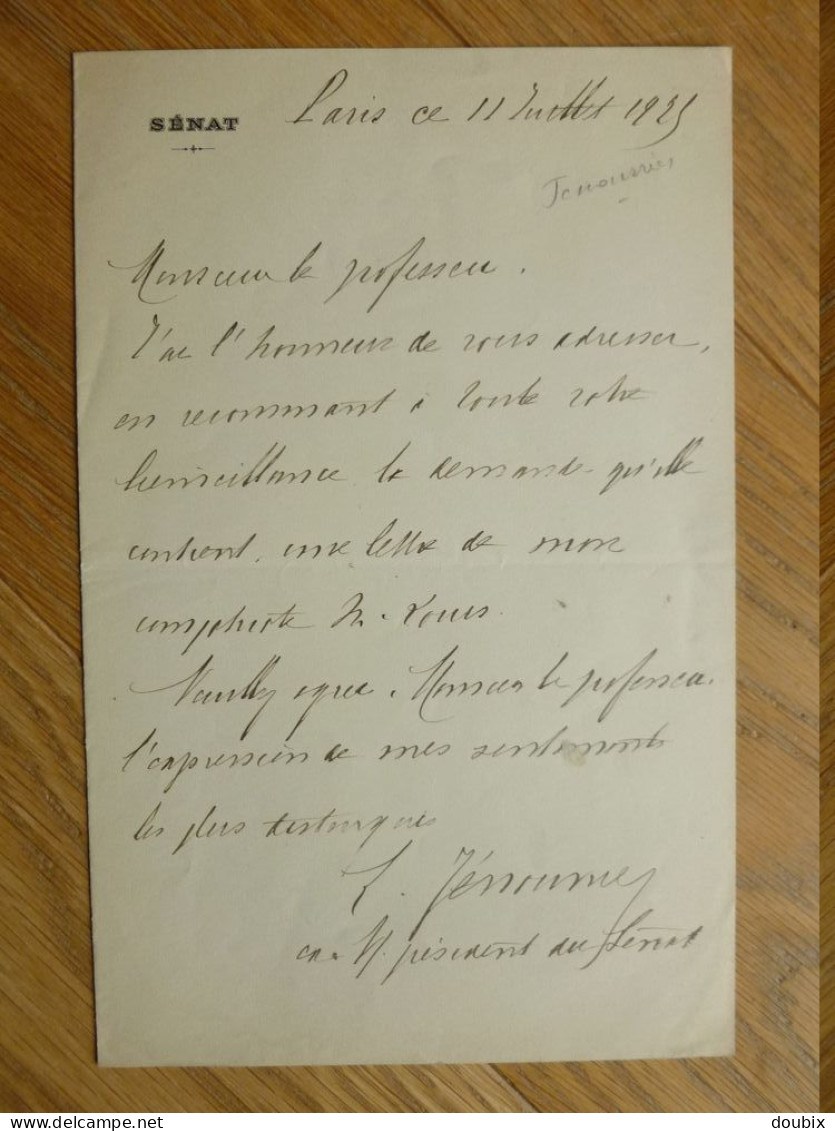 SÉNAT
Paris ce 11 Juillet 1925
Jenouvrier
Monsieur le professeur.
J'ai l'honneur de vous adresser,
en recommant à toute votre
bienveillance la demande qu'elle
contient, une lettre de mon
compatriote M. Louis.
Veuillez agréer, Monsieur le professeur,
l'expression de mes sentiments
les plus distingués
L. Jénouvrier
V. président du Sénat
Delcampe.net
doubix